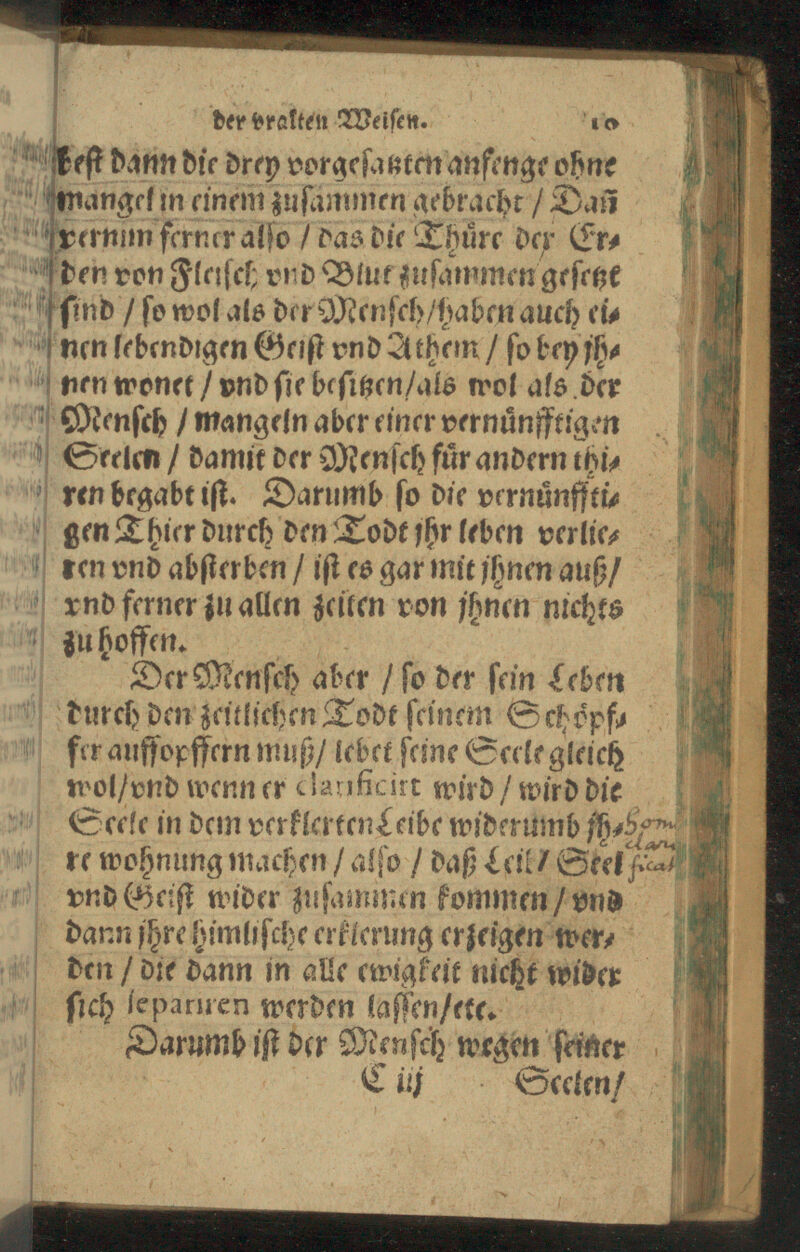 der vralten Weisen. 10
kest dann die drey vorgesatzten anfenge ohne
mangel in einem zusammen gebracht / Dañ
vernim ferner also / das die Thůre der Er⸗
den von Fleisch vnd Blut zusammen gesetzt
sind / so wol als der Mensch/haben auch ei⸗
nen lebendigen Geist vnd Athem / so bey jh⸗
nen wonet / vnd sie besitzen/als wol als der
Mensch / mangeln aber einer vernůnfftigen
Seelen / damit der Mensch fůr andern thi⸗
ren begabt ist. Darumb so die vernůnffti⸗
gen Thier durch den Todt jhr leben verlie⸗
ren vnd absterben / ist es gar mit jhnen auß/
vnd ferner zu allen zeiten von jhnen nichts
zu hoffen.
Der Mensch aber / so der sein Leben
durch den zeitlichen Todt seinem Schöpf⸗
fer auffopffern muß/ lebet seine Seele gleich
wol/vnd wenn er clarificirt wird / wird die
Seele in dem verklerten Leibe widerumb jh⸗
re wohnung machen / also / daß Leib/ Seel
vnd Geist wider zusammen kommen / vnd
dann jhre himlische erklerung erzeigen wer⸗
den / die dann in alle ewigkeit nicht wider
sich separiren werden lassen/etc.
Darumb ist der Mensch wegen seiner
C iij Seelen/